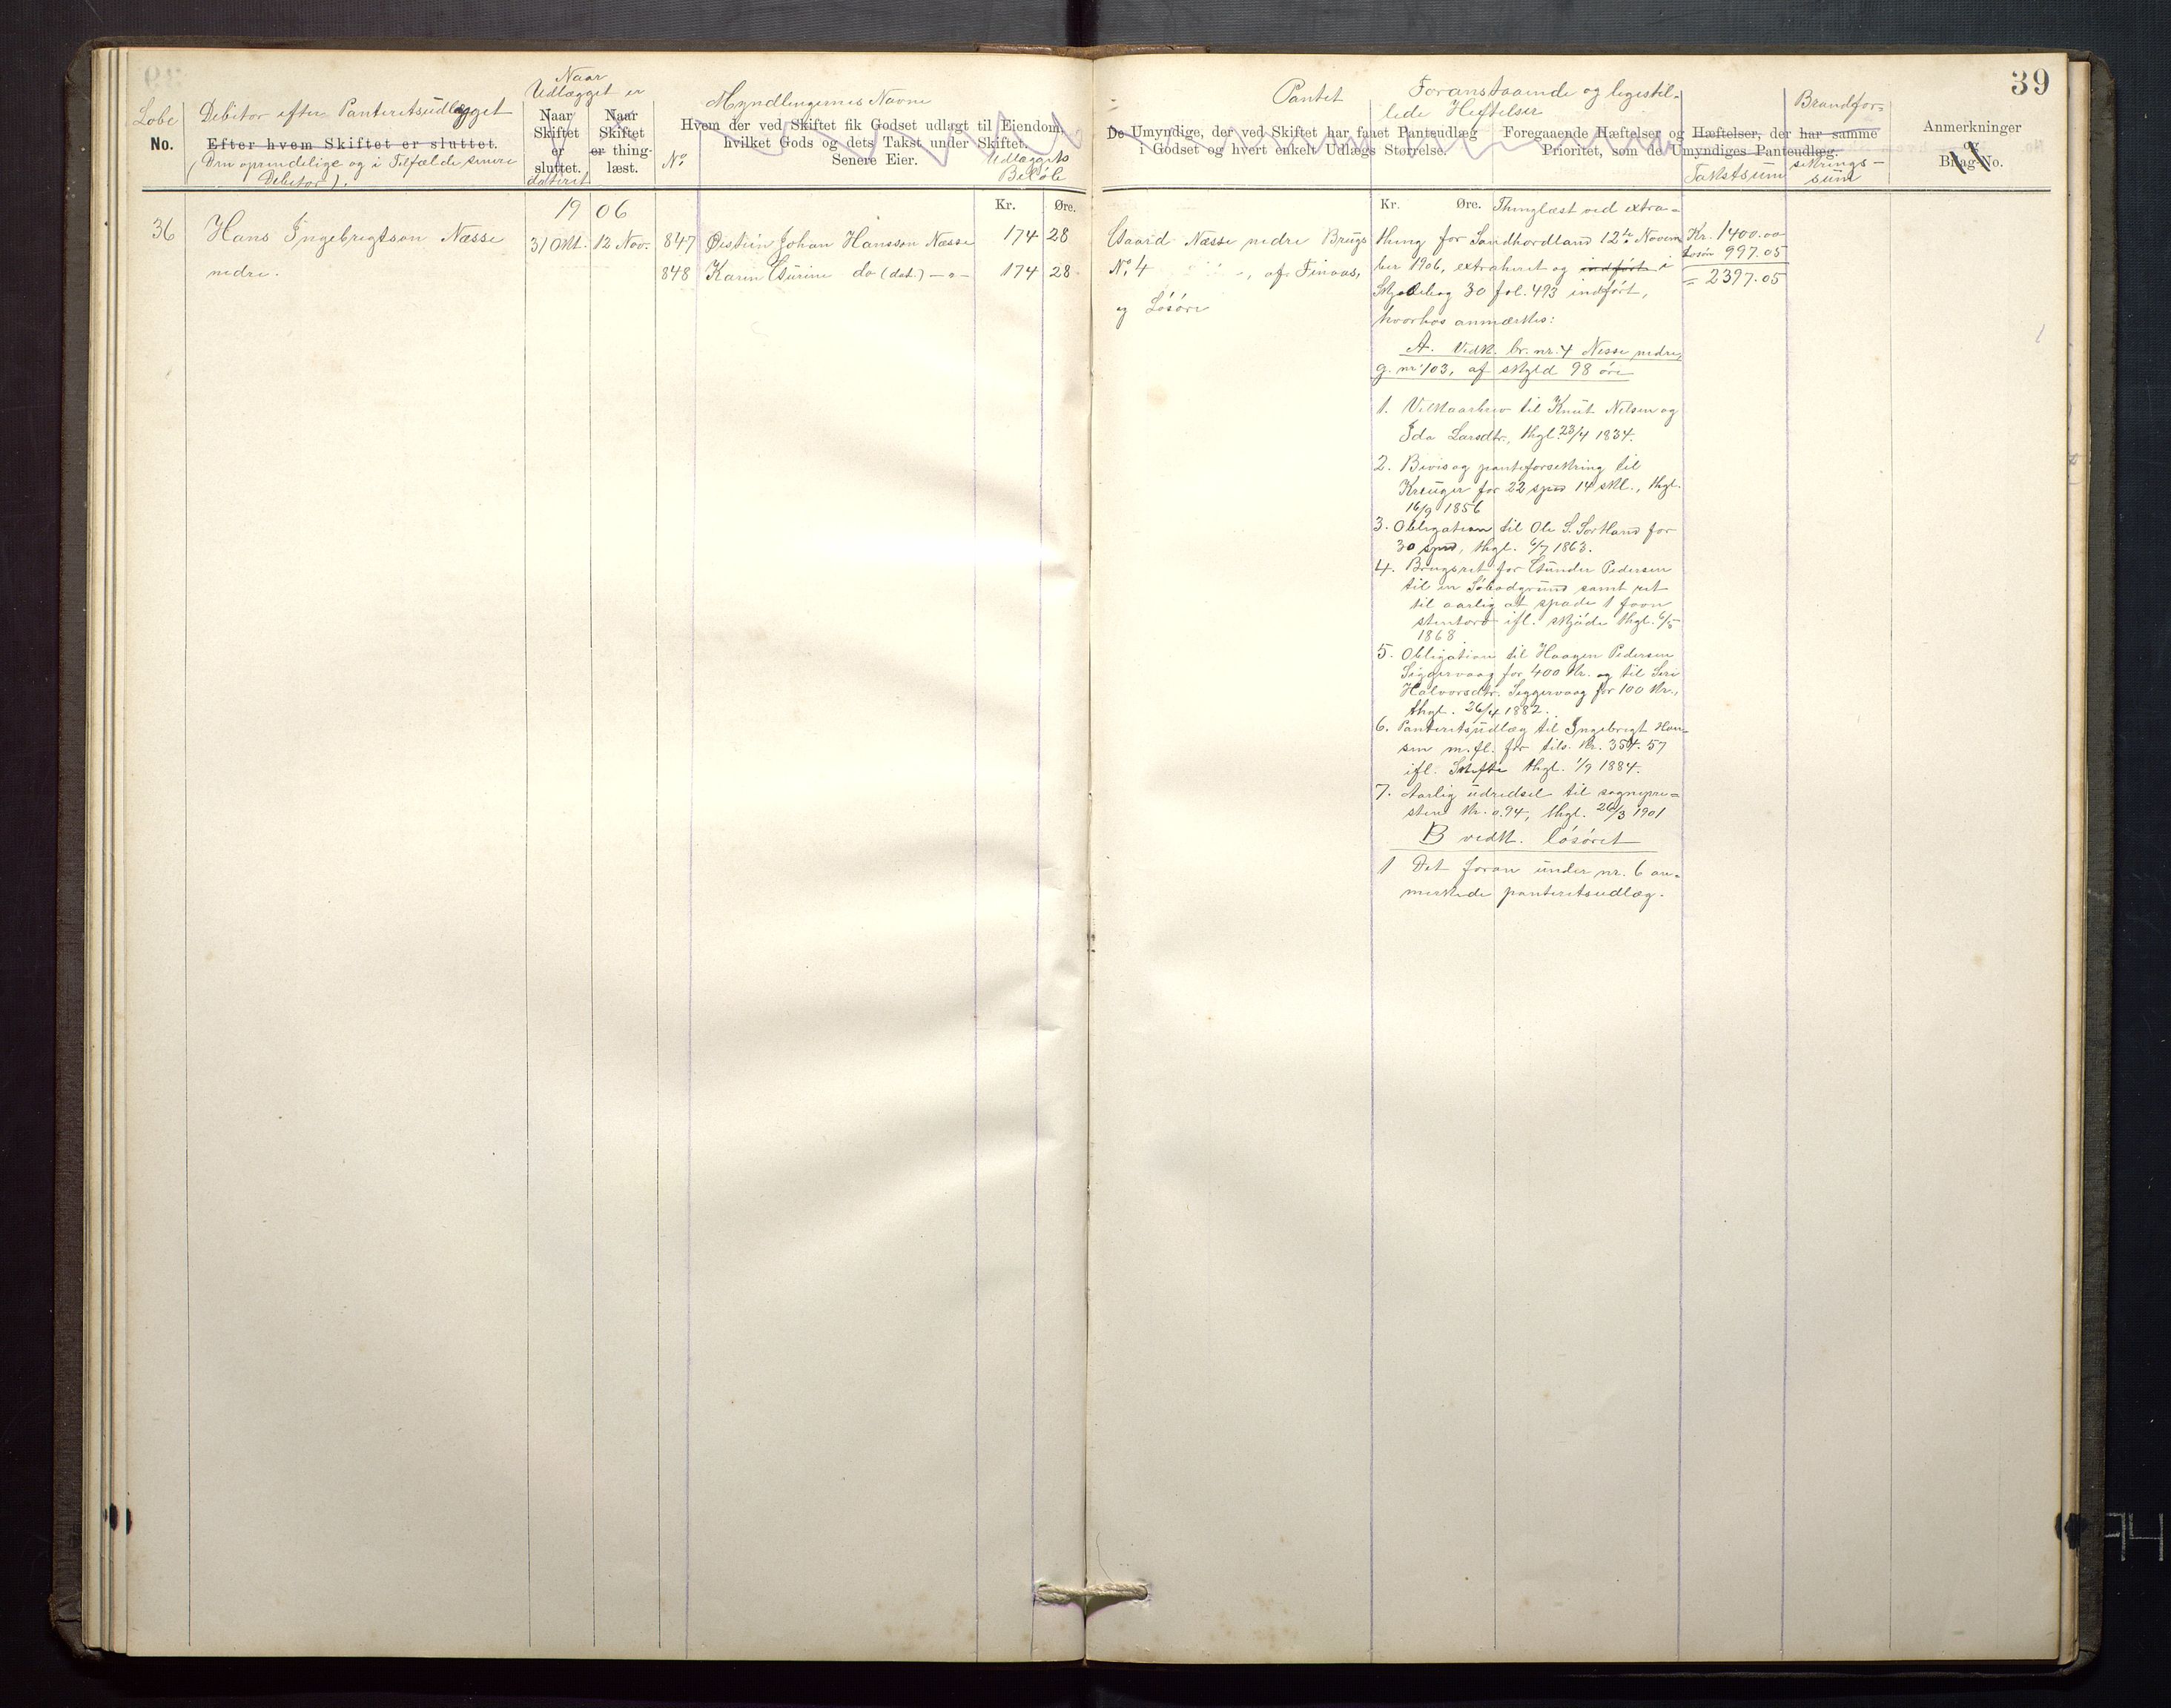 39
Løbe
No.
Debitor efter Panteretsudlægget
Efter hvem Skiftet er sluttet.
(Den oprindelige og i Tilfælde senere
Debitor).
Naar
Udlægget er
Naar
Skiftet
er
sluttet.
dateret
Naar
Skiftet
er thing-
læst.
No
Myndlingernes Navne
Hvem der ved Skiftet fik Godset udlagt til Eiendom,
hvilket Gods og dets Takst under Skiftet.
Senere Eier.
Udlæggets
Beløb
Kr. Øre.
Pantet
De Umyndige, der ved Skiftet har faaet Panteudlæg
i Godset og hvert enkelt Udlægs Størrelse.
Foranstaaende og ligestil-
lede Heftelser
Foregaaende Hæftelser og Hæftelser, der har samme
Prioritet, som de Umyndiges Panteudlæg.
Takstsum
Brandfor-
sikrings-
sum
Anmerkninger
og
Bilag-No.
1906
36 Hans Ingebrigtson Næsse
nedre.
31 Okt. 12 Nov.
847 Øistein Johan Hansson Næsse 174 28
848 Karin Gurine do (dat.) — " — 174 28
Gaard Næsse nedre Brugs
No. 4 , af Finaas,
og Løsøre
Kr. Øre.
Thinglæst ved extra-
thing for Søndhordland 12te Novem
ber 1906, extraheret og indført i
Skjødebog 30 fol. 493 indført,
hvorhos anmærkes:
A. Vedk. br. nr. 4 Nesse nedre,
g. nr. 103, af skyld 98 øre
1. Vilkaarbrev til Knut Nelsen og
Ida Larsdtr., thgl. 23/4 1834.
2. Bevis og panteforsikring til
Kreuger for 22 spd 14 skl., thgl.
16/9 1856
3. Obligation til Ole S. Sortland for
30 spd, thgl. 6/7 1863.
4. Brugsret for Gunder Pedersen
til en Søbodgrund samt ret
til aarlig at spade 1 favn
stentorv ifl. skjøde thgl. 6/5
1868
5. Obligation til Haagen Pedersen
Siggervaag for 400 Kr. og til Siri
Halvorsdtr. Siggervaag for 100 Kr.,
thgl. 26/4 1882.
6. Panteretsudlæg til Ingebrigt Han-
sen m. fl. for tils. Kr. 354.57
ifl. Skifte thgl. 1/9 1884.
7. Aarlig udredsel til sognepre-
sten Kr. 0.94, thgl. 26/3 1901
B vedk. løsøret
1 Det foran under nr. 6 an-
merkede panteretsudlæg.
Kr. 1400.00
Løsøre 997.05
= 2397.05